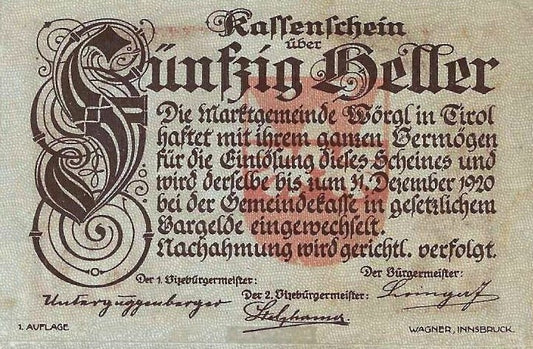 Kassenschein
über
Fünfzig Heller
Die Marktgemeinde Wörgl in Tirol
haftet mit ihrem ganzen Vermögen
für die Einlösung dieses Scheines und
wird derselbe bis zum 31. Dezember 1920
bei der Gemeindekasse in gesetzlichem
Bargelde eingewechselt.
Nachahmung wird gerichtl. verfolgt.
Der 1. Vizebürgermeister: Der 2. Vizebürgermeister: Der Bürgermeister:
Unterguggenberger
1. AUFLAGE WAGNER, INNSBRUCK